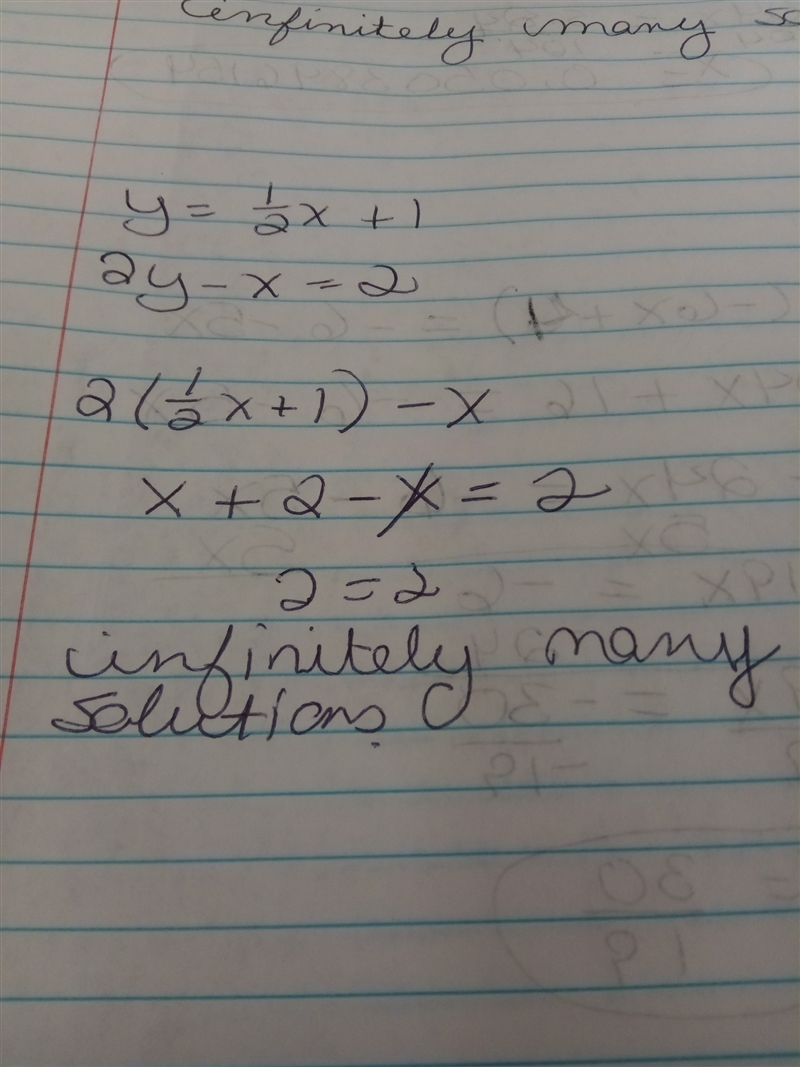 infinitely many
y = 1/2x + 1
2y - x = 2
2(1/2x + 1) - x
x + 2 - x = 2
2 = 2
infinitely many
solutions